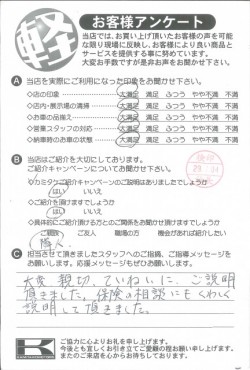 軽
お客様アンケート
当店では、お買い上げ頂いたお客様の声を可能
な限り現場に反映し、お客様により良い商品と
サービスを提供する事に努めています。
大変お手数ですが是非お声をお聞かせ下さい。
A 当店を実際にご利用になった印象をお聞かせ下さい。
○店の印象 大満足 満足 ふつう やや不満 不満
○店内・展示場の清掃 大満足 満足 ふつう やや不満 不満
○お車の品揃え 大満足 満足 ふつう やや不満 不満
○営業スタッフの対応 大満足 満足 ふつう やや不満 不満
○納車時のお車の状態 大満足 満足 ふつう やや不満 不満
B 当店はご紹介を大切にしております。
ご紹介キャンペーンについてお聞かせ下さい。
○カミタケご紹介キャンペーンのご説明はありましたでしょうか
はい いいえ
○ご紹介を頂けますでしょうか
はい いいえ
○具体的にご紹介頂ける方とのご関係をお聞かせ頂けますでしょうか
ご親戚 ご友人 職場の方 機会があれば紹介したい
隣人
C 担当させて頂きましたスタッフへのご指摘、ご指導メッセージを
お願いします。応援メッセージもぜひお願いします。
大変 親切、ていねいに、ご説明
頂きました。保険の相談にもくわしく
説明して頂きました。
K
ご協力に心よりお礼を申し上げます。
今後とも宜しくお引き立てご愛顧の程お願い申し上げます。
またのご来店を心からお待ちしております。